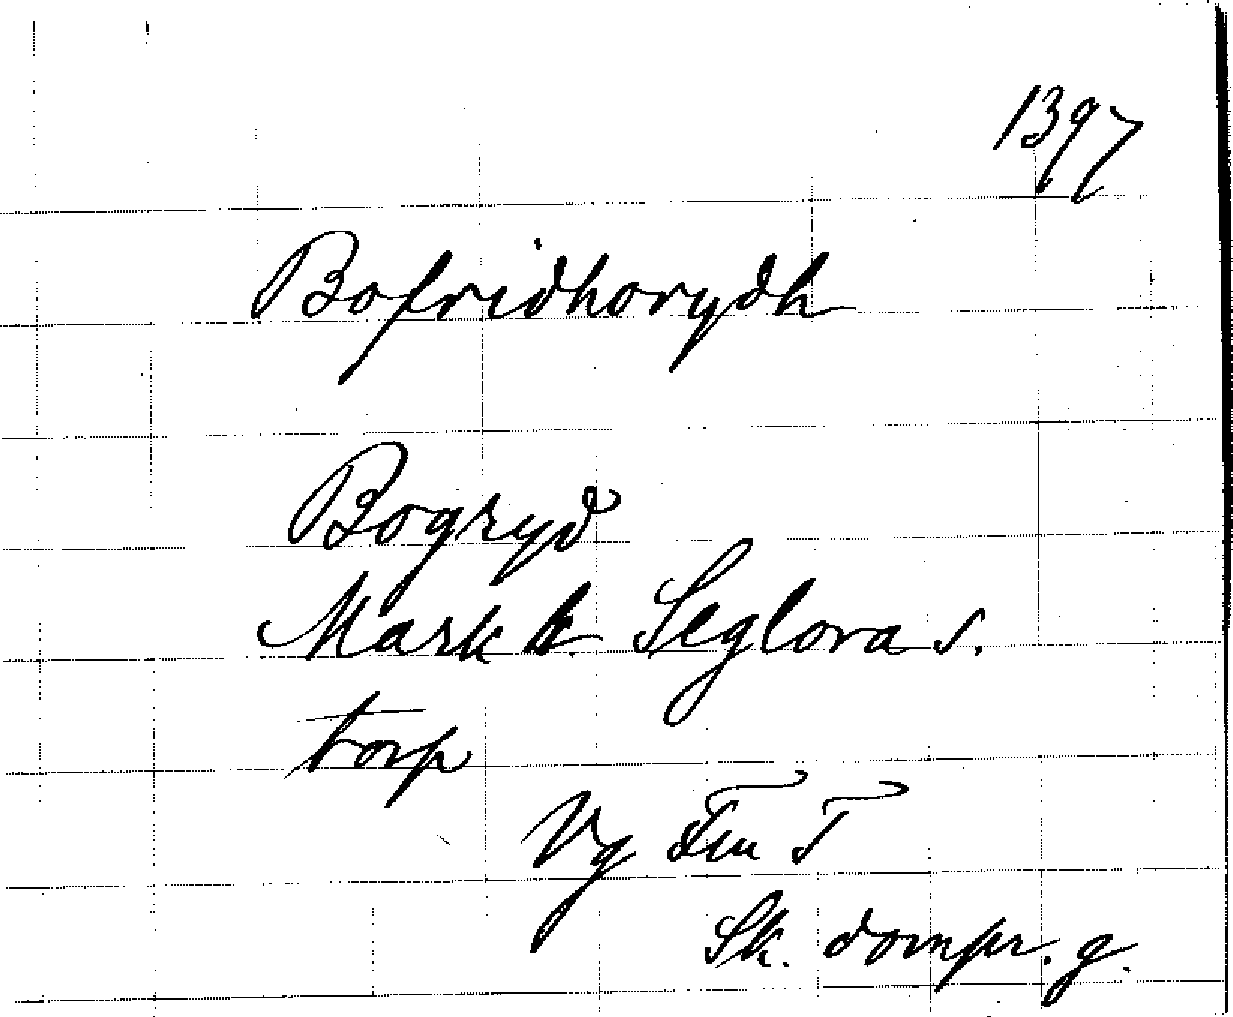 1397
Bofridhorydh
Bogryd
Mark h. Seglora s.
torp
Vg Fru T
Sk. dompr. g.